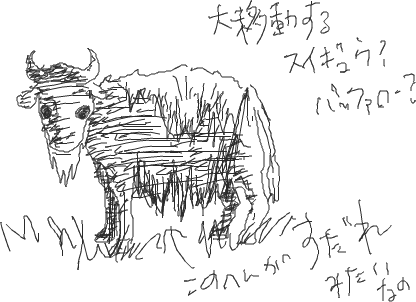 大移動する
スイギュウ?
バッファロー?
このへんが すだれ
みたいなの